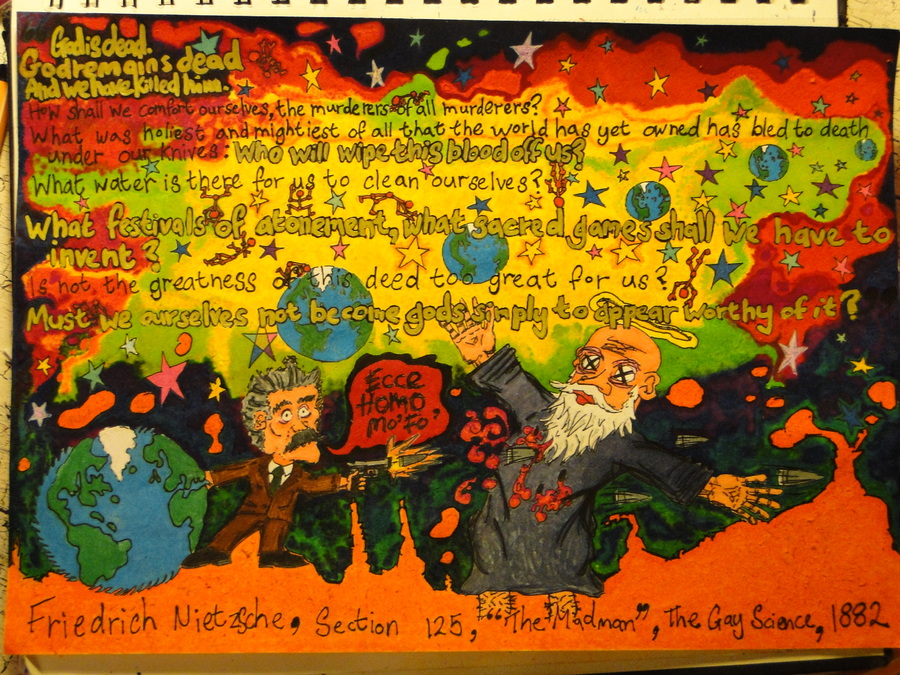 God is dead.
God remains dead
And we have killed him.
How shall we comfort ourselves, the murderers of all murderers?
What was holiest and mightiest of all that the world has yet owned has bled to death
under our knives: Who will wipe this blood off us?
What water is there for us to clean ourselves?
What festivals of atonement, what sacred games shall we have to
invent?
Is not the greatness of this deed too great for us?
Must we ourselves not become gods simply to appear worthy of it?
Ecce
HOMO
Mo'fo'
Friedrich Nietzsche, Section 125, "The Madman", The Gay Science, 1882